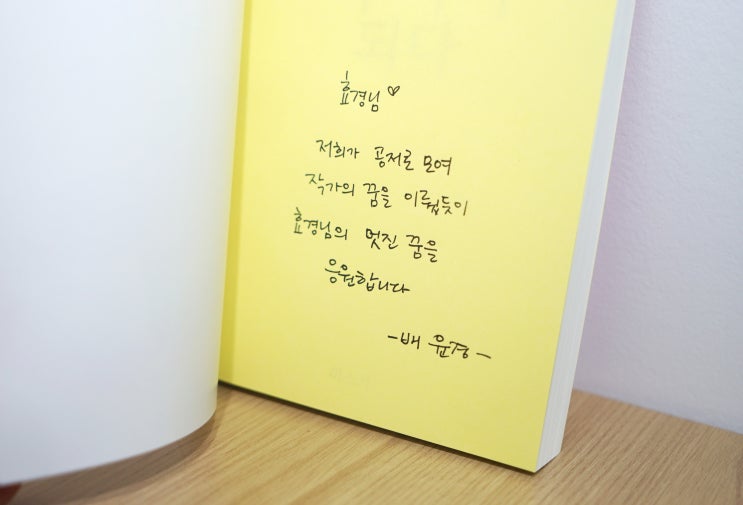 효경님♡
저희가 공저로 모여
작가의 꿈을 이뤘듯이
효경님의 멋진 꿈을
응원합니다
-배 윤경-